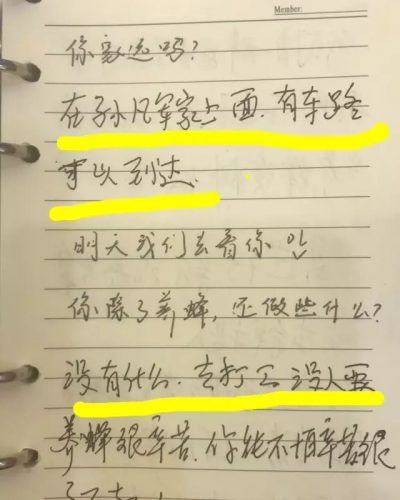 Member:
你家远吗?
在孙凡军家上面.有车路
可以到达.
明天我们去看你吖
你除了养蜂,还做些什么?
没有什么.去打工没人要
养蜂很辛苦.你能不怕辛苦很
了不起!